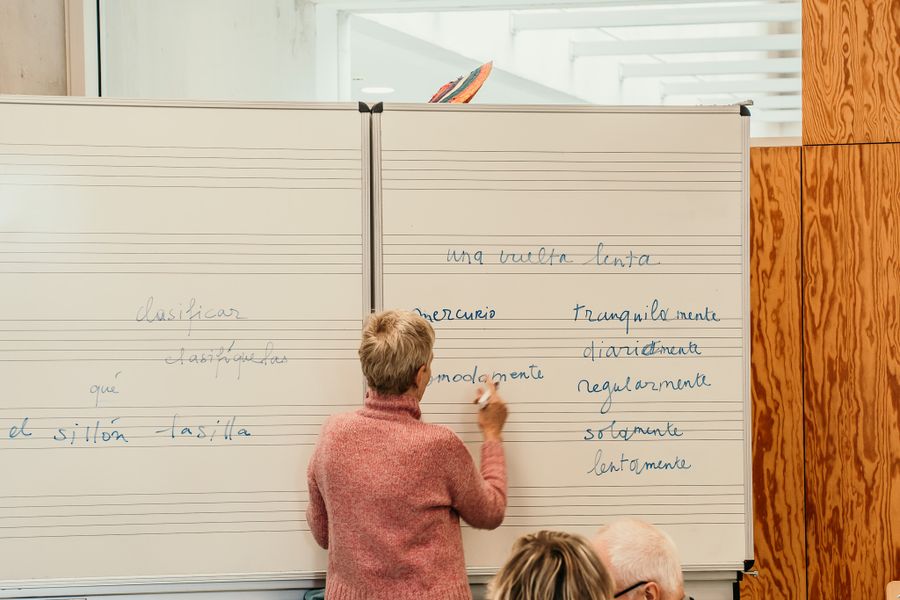 clasificar
clasifíquelas
qué
el sillón la silla
una vuelta lenta
mercurio
modamente
tranquilamente
diariamente
regularmente
solamente
lentamente